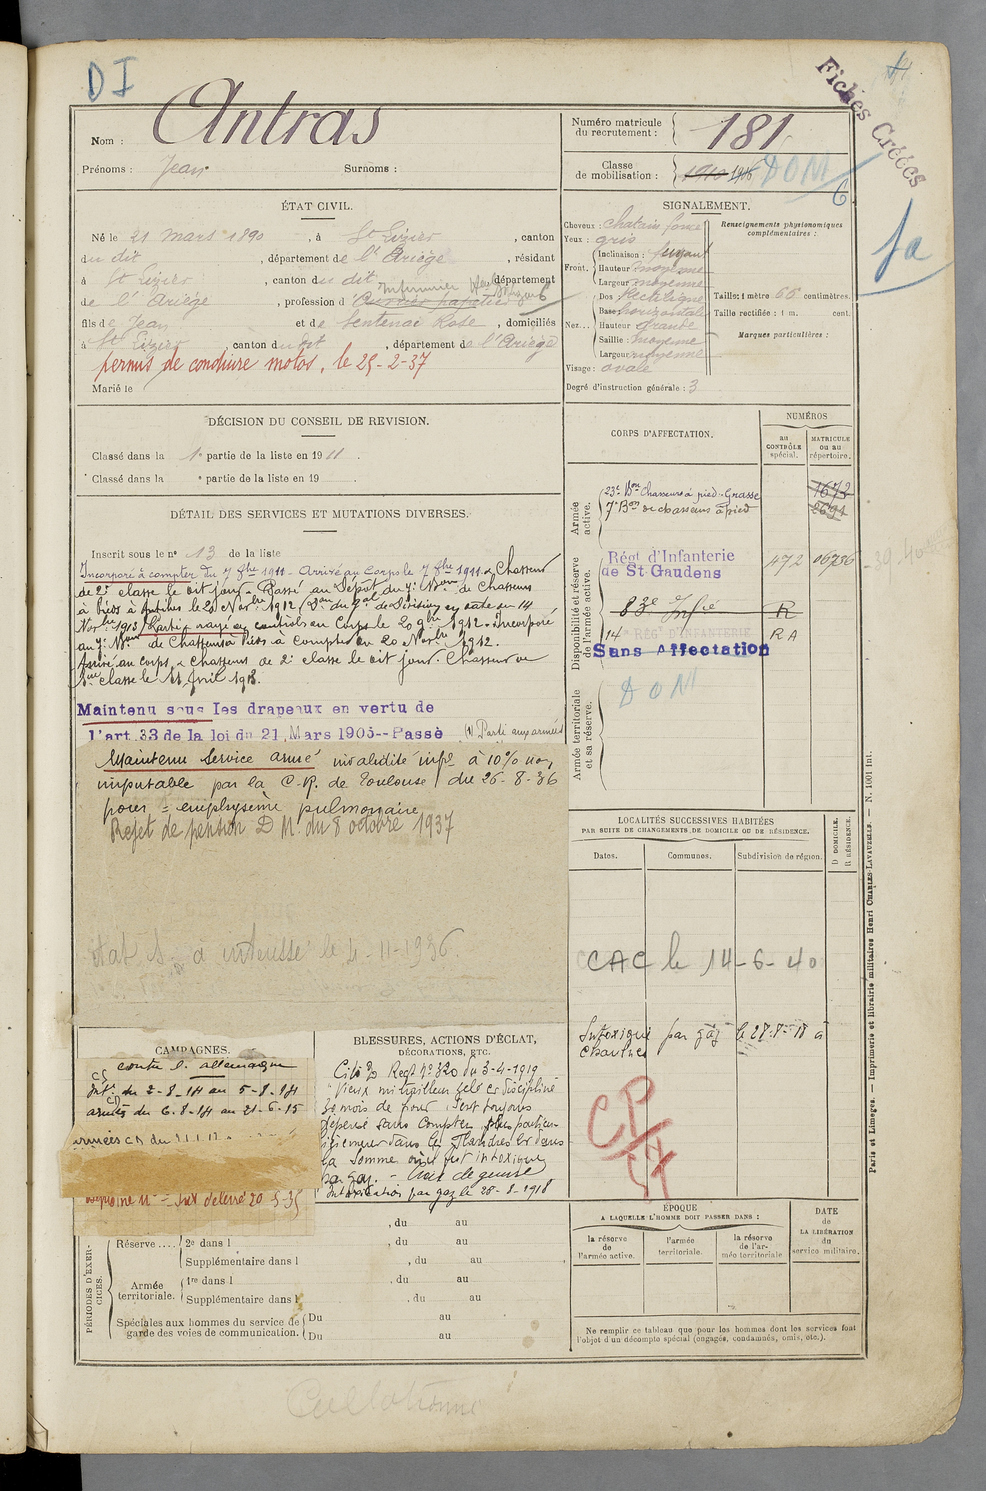 DI
Fiches Créées
Nom : Antras
Prénoms : Jean Surnoms :
Numéro matricule du recrutement : 181
Classe de mobilisation : 1910 DOM
fa
ÉTAT CIVIL.
Né le 21 mars 1890, à St Lizier, canton
du dit, département de l'Ariège, résidant
à St Lizier, canton du dit, département
de l'Ariège, profession d'Ouvrier papetier Infirmier
fils de Jean et de Sentenac Rose, domiciliés
à St Lizier, canton du dit, département de l'Ariège
permis de conduire motos, le 25-2-37
Marié le
SIGNALEMENT.
Cheveux : chatain foncé
Yeux : gris
Front. Inclinaison : fuyant
Hauteur : moyenne
Largeur : moyenne
Nez... Dos : rectiligne
Base : horizontale
Hauteur : grande
Saillie : moyenne
Largeur : moyenne
Visage : ovale
Renseignements physionomiques complémentaires :
Taille : 1 mètre 66 centimètres.
Taille rectifiée : 1 m. cent.
Marques particulières :
Degré d'instruction générale : 3
DÉCISION DU CONSEIL DE REVISION.
Classé dans la 1e partie de la liste en 1911.
Classé dans la e partie de la liste en 19 .
DÉTAIL DES SERVICES ET MUTATIONS DIVERSES.
Inscrit sous le no 13 de la liste
Incorporé à compter du 7 8bre 1911 - Arrivé au Corps le 7 8bre 1911 & Chasseur
de 2e classe le dit jour - Passé au Dépôt du 7e Bon de Chasseurs
à Pieds à Antibes le 20 Novbre 1912
Novbre 1913 Parti & rayé des contrôles du Corps le 20 9bre 1912 - Incorporé
au 7e Bon de Chasseurs à Pieds à compter du 20 Novbre 1912.
Arrivé au corps & Chasseur de 2e classe le dit jour. Chasseur de
1ere classe le 11 Avril 1913.
Maintenu sous les drapeaux en vertu de
l'art. 33 de la loi du 21 Mars 1905--Passé (1) Parti aux armées
Maintenu Service armé invalidité infre à 10% non
imputable par la C.R. de Toulouse du 26-8-36
pour = emphysème pulmonaire
Rejet de pension D M. du 8 octobre 1937
Etat S. à intéressé le 4-11-1936.
CORPS D'AFFECTATION.
NUMÉROS
au contrôle spécial.
matricule ou au répertoire.
Armée active.
23e Bon Chasseurs à pied - Grasse 1672
7e Bon de chasseurs à pied 2691
Disponibilité et réserve de l'armée active.
Régt d'Infanterie de St-Gaudens 472 06736
83e Infie R
14e RÉGt D'INFANTERIE RA
Sans Affectation
Armée territoriale et sa réserve.
DOM
LOCALITÉS SUCCESSIVES HABITÉES
PAR SUITE DE CHANGEMENTS DE DOMICILE OU DE RÉSIDENCE.
Dates. Communes. Subdivision de région.
D. DOMICILE. R. RÉSIDENCE.
CAC le 14-6-40
Intoxiqué par gaz le 27-8-18 à
Chaulnes
CP
CAMPAGNES.
contre l'allemagne
CS Intr du 2-8-14 au 5-8-14
CD armées du 6-8-14 au 21-6-15
BLESSURES, ACTIONS D'ÉCLAT,
DÉCORATIONS, ETC.
Cité O Regt No 320 du 3-4-1919
"Vieux mitrailleur zélé et discipliné
30 mois de front, s'est toujours
dépensé sans compter, plus particu-
lièrement dans les Flandres et dans
la Somme où il fut intoxiqué
par gaz. - Croix de guerre
Intoxication par gaz le 28-8-1918
PÉRIODES D'EXERCICES.
, du au
Réserve.... 2e dans l , du au
Supplémentaire dans l , du au
Armée territoriale. 1re dans l , du au
Supplémentaire dans l , du au
Spéciales aux hommes du service de garde des voies de communication. Du au
Du au
ÉPOQUE
A LAQUELLE L'HOMME DOIT PASSER DANS :
la réserve de l'armée active.
l'armée territoriale.
la réserve de l'armée territoriale.
DATE de LA LIBÉRATION du service militaire.
Ne remplir ce tableau que pour les hommes dont les services font
l'objet d'un décompte spécial (engagés, condamnés, omis, etc.).
Paris et Limoges. — Imprimerie et librairie militaires Henri CHARLES-LAVAUZELLE. — N. 1001 Int.
Collationné